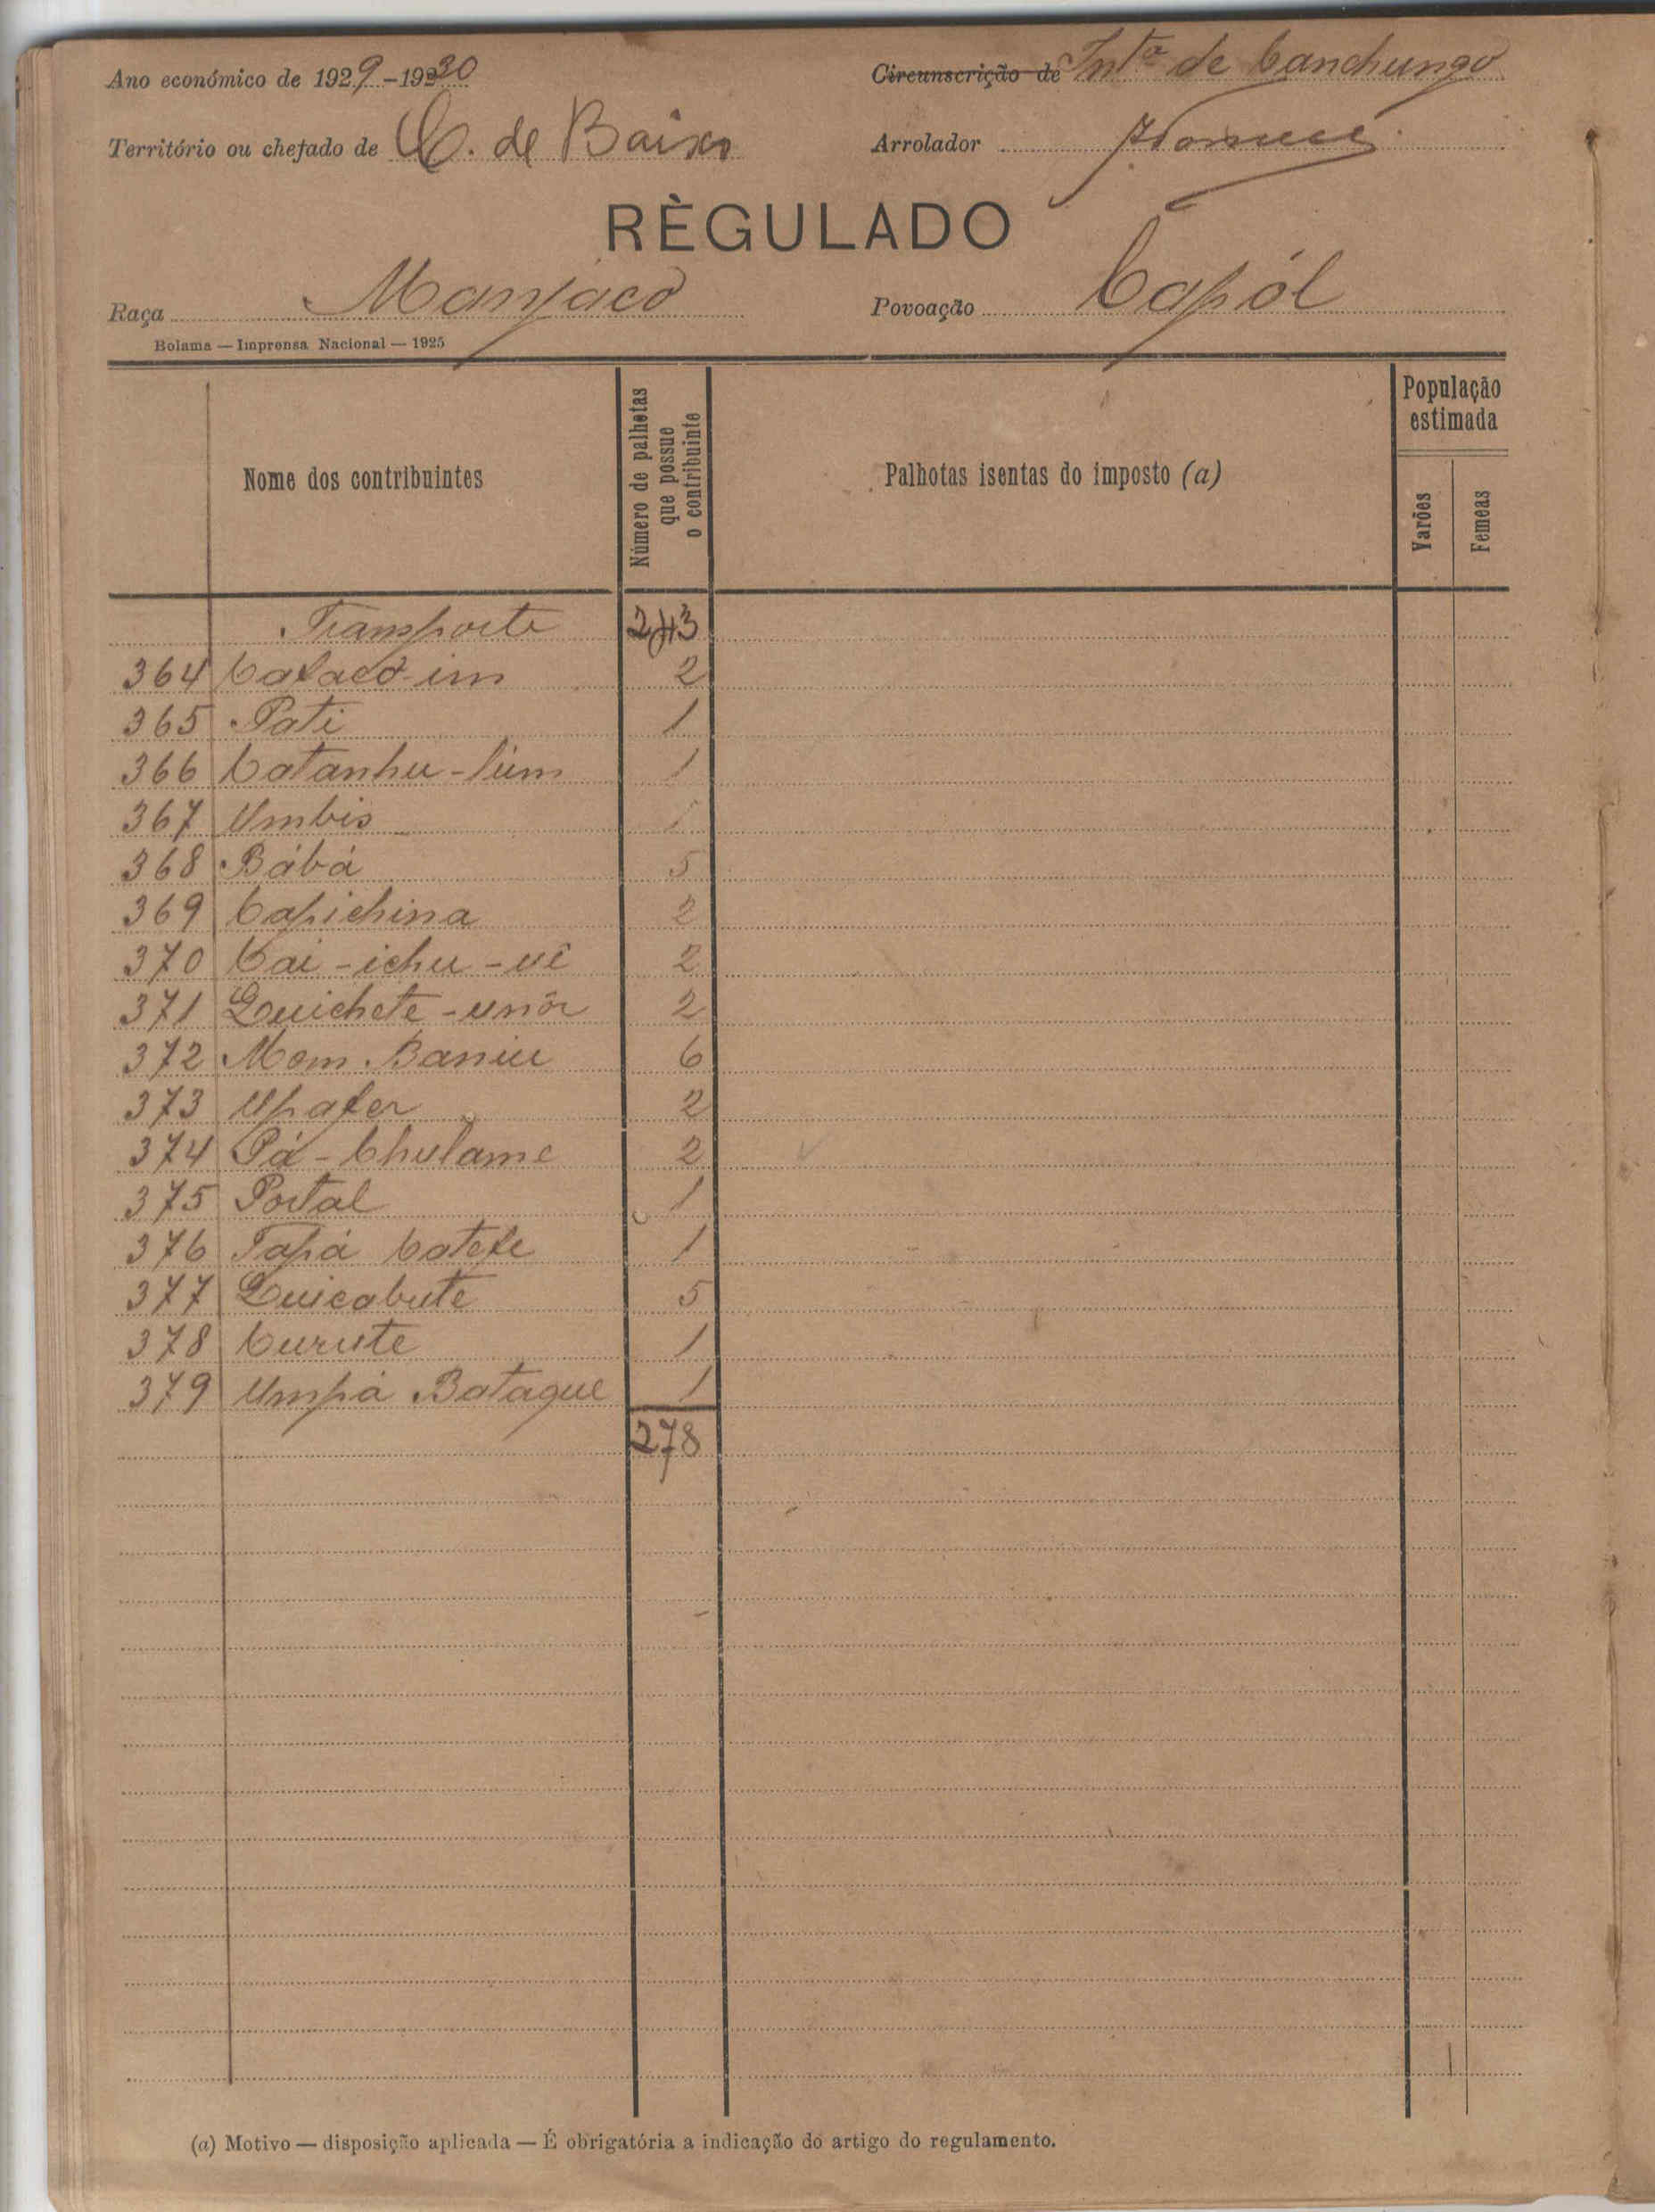 Ano económico de 1929-1930
Circunscrição de Int.ª de Canchungo
Território ou chefado de C. de Baixo
Arrolador
RÈGULADO
Raça Manjaco
Povoação Capól
Bolama — Imprensa Nacional — 1925
Nome dos contribuintes
Número de palhotas que possue o contribuinte
Palhotas isentas do imposto (a)
População estimada
Varões
Femeas
Transporte 243
364 Cafaco-im 2
365 Pati 1
366 Catanhu-lúm 1
367 Umbis 1
368 Bábá 5
369 Capichina 2
370 Cai-ichu-uê 2
371 Quichete-unôr 2
372 Mom Baniu 6
373 Upafer 2
374 Pá-Chulame 2
375 Portal 1
376 Tapá Catefe 1
377 Quicabute 5
378 Curute 1
379 Umpá Bataque 1
278
(a) Motivo — disposição aplicada — É obrigatória a indicação do artigo do regulamento.